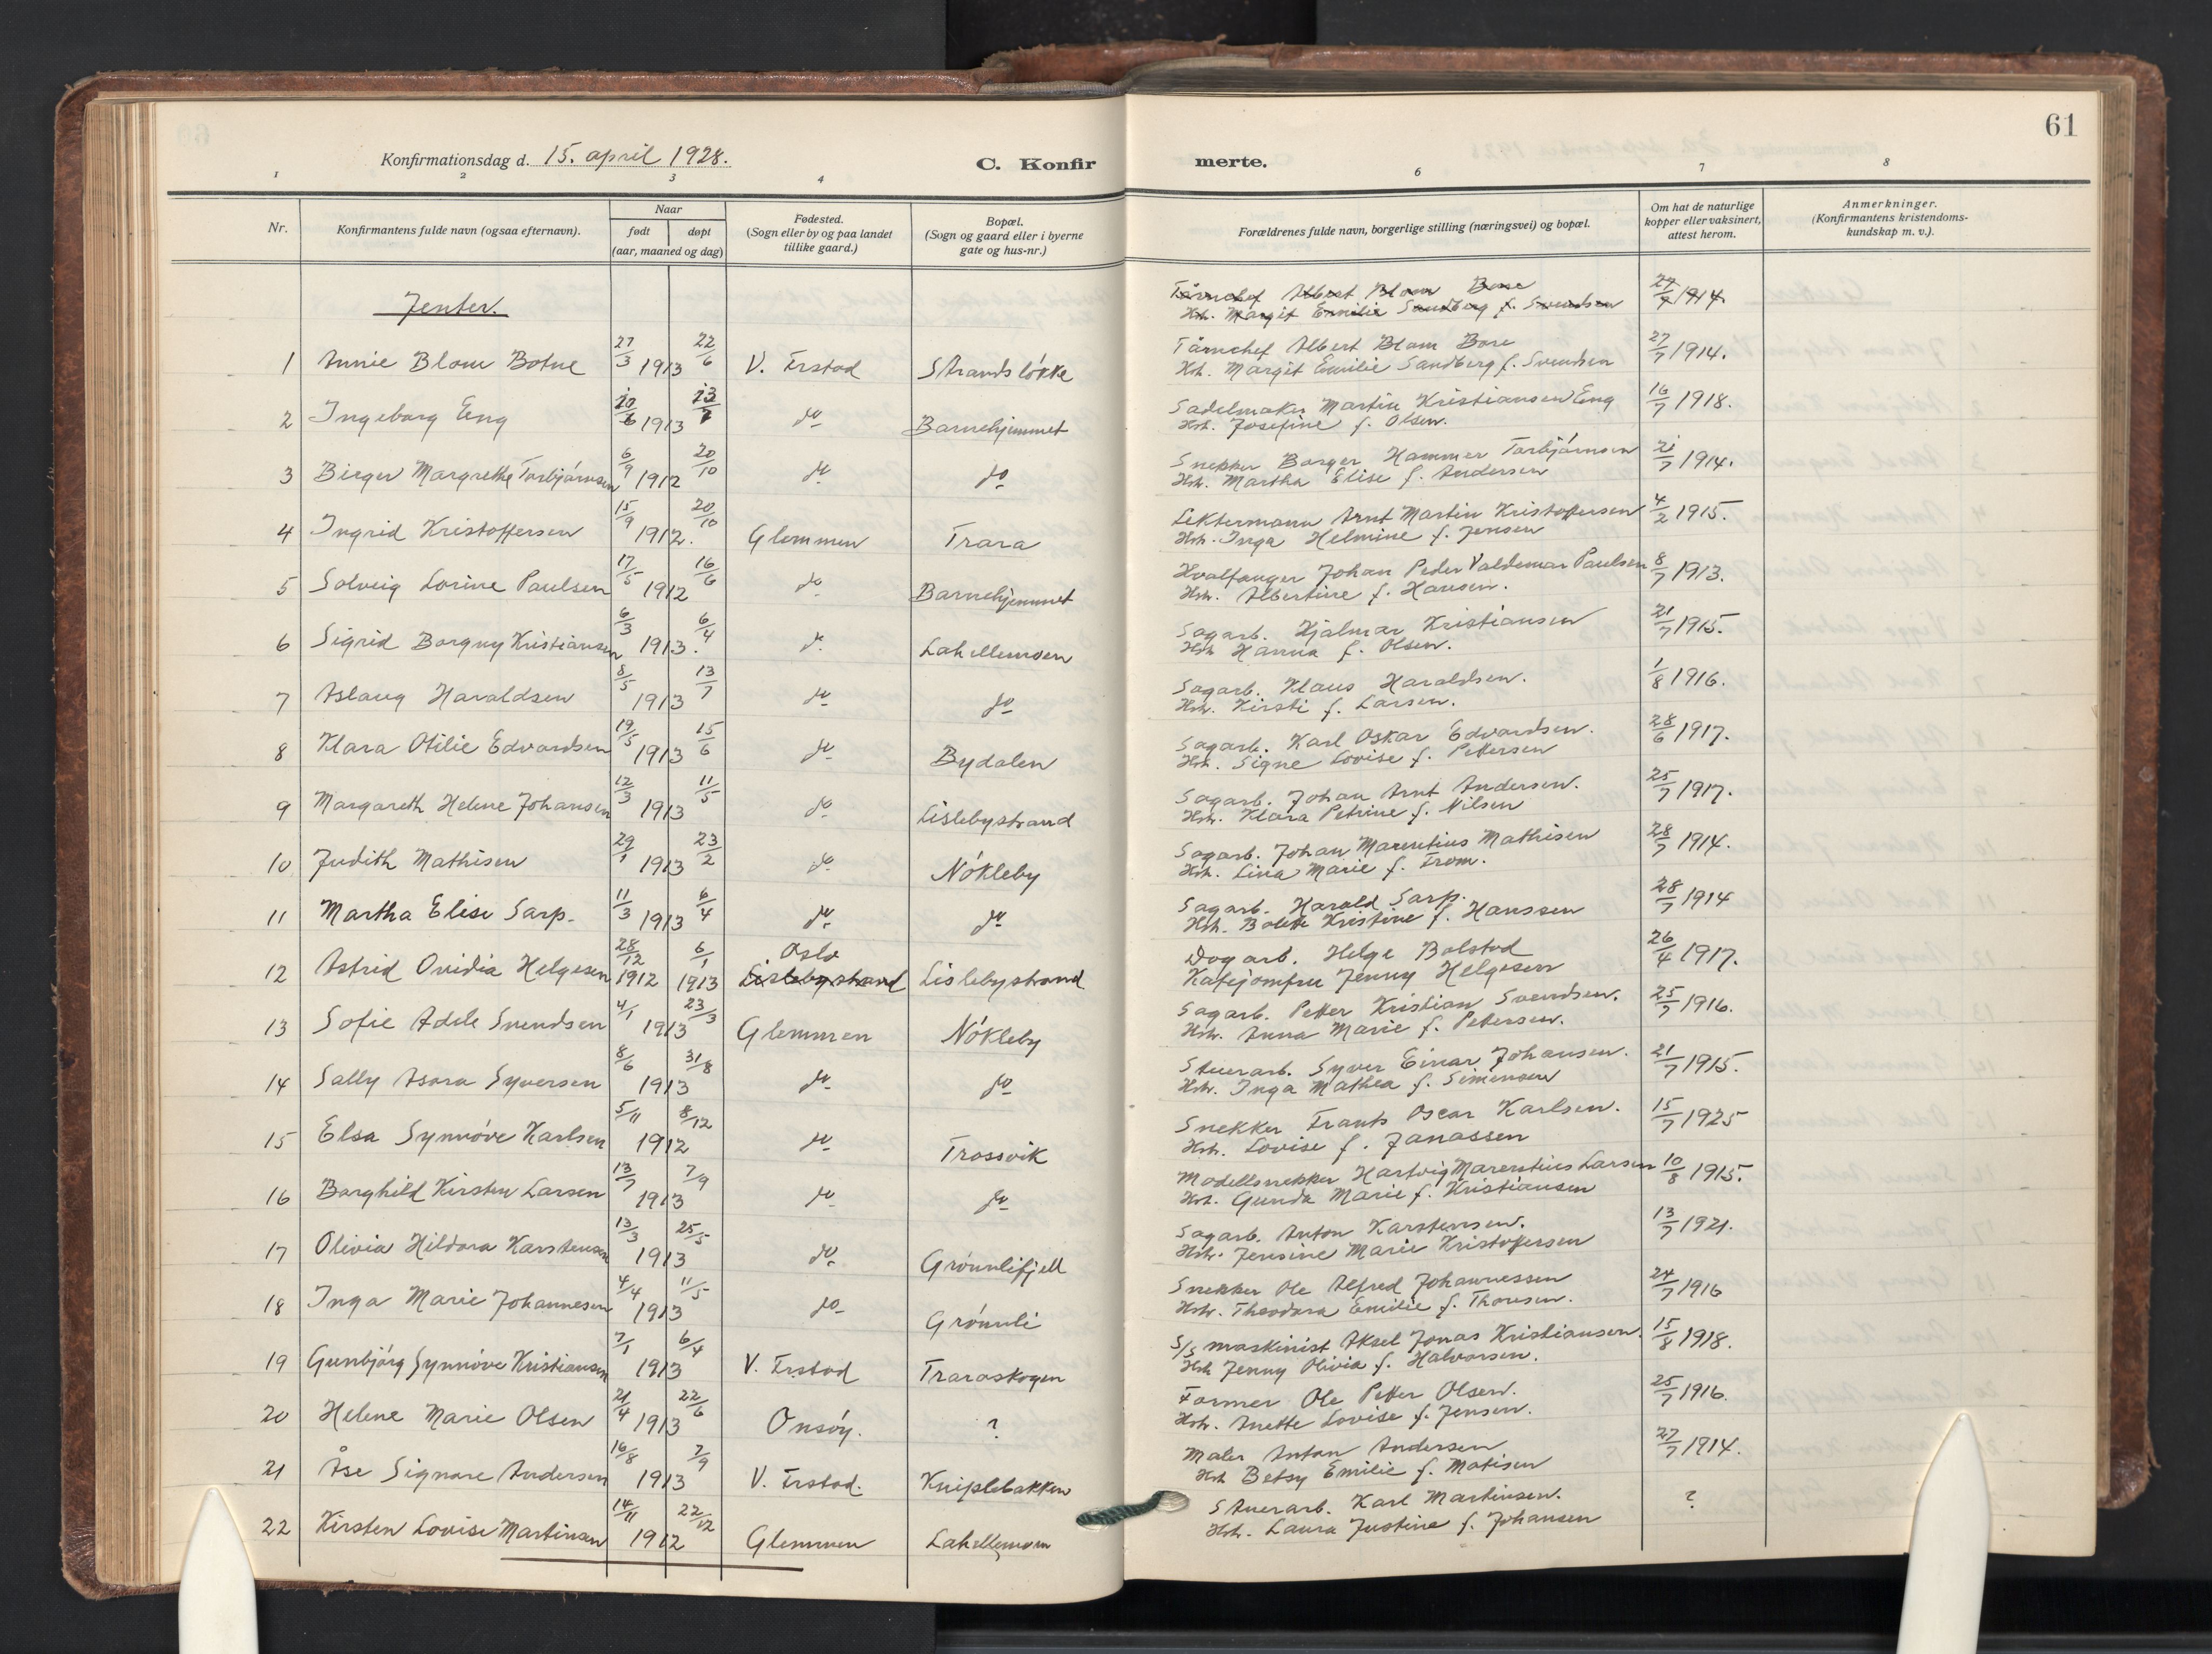 61
Konfirmationsdag d. 15. april 1928.
C. Konfir
merte.
1 2 3 4
6 7 8
Nr.
Konfirmantens fulde navn (ogsaa efternavn).
Naar
født døpt
(aar, maaned og dag)
Fødested.
(Sogn eller by og paa landet
tillike gaard.)
Bopæl.
(Sogn og gaard eller i byerne
gate og hus-nr.)
Forældrenes fulde navn, borgerlige stilling (næringsvei) og bopæl.
Om hat de naturlige
kopper eller vaksinert,
attest herom.
Anmerkninger.
(Konfirmantens kristendoms-
kundskap m. v.).
Jenter.
Tårnchef Albert Blom Bose 27/7 1914.
Hst. Margit Emilie Sandberg f. Svendsen
1 Annie Blom Botne 27/3 1913 22/6 V. Frstad Strandsløkke
Tårnchef Albert Blom Bose 27/7 1914.
Hst. Margit Emilie Sandberg f. Svendsen
2 Ingeborg Eng 20/6 1913 do Barnehjemmet
Sadelmaker Martin Kristiansen Eng 16/7 1918.
Hst. Josefine f. Olsen.
3 Birger Margrethe Torbjørnsen 6/9 1912 20/10 do do
Snekker Borger Hammer Torbjørnsen 21/7 1914.
Hst. Martha Elise f. Andersen
4 Ingrid Kristoffersen 15/9 1912. 20/10 Glemmen Trara
Lektermann Arnt Martin Kristoffersen 4/2 1915.
Hst. Inga Helmine f. Jensen
5 Solveig Lorine Paulsen 17/5 1912 16/6 do Barnehjemmet
Hvalfanger Johan Peder Valdemar Paulsen 8/7 1913.
Hst. Albertine f. Hansen.
6 Sigrid Borgny Kristiansen 6/3 1913. 6/4 do Lahellemoen
Sagarb. Hjalmar Kristiansen 21/7 1915.
Hst Hanna f. Olsen.
7 Aslaug Haraldsen 8/5 1913 13/7 do do
Sagarb. Klaus Haraldsen. 1/8 1916.
Hst. Kirsti f. Larsen.
8 Klara Otilie Edvardsen 19/5 1913 15/6 do Bydalen
Sagarb. Karl Oskar Edvardsen. 28/6 1917.
Hst. Signe Lovise f. Pettersen
9 Margareth Helene Johansen 12/3 1913 11/5 do Lislebystrand
Sagarb. Johan Arnt Andersen. 25/7 1917.
Hst. Klara Petrine f. Nilsen
10 Judith Mathisen 29/1 1913 23/2 do Nøkleby
Sagarb. Johan Marentius Mathisen 28/7 1914.
Hst. Lina Marie f. From.
11 Martha Elise Sarp. 11/3 1913 6/4 do do
Sagarb. Harald Sarp. 28/7 1914
Hst. Bolette Kristine f. Hanssen
12 Astrid Ovidia Helgesen 28/12 1912 6/1 1913 Oslo Lislebystrand Lislebystrand
Dagarb. Helge Bolstad 26/4 1917.
Kafejomfru Jenny Helgesen
13 Sofie Adele Svendsen 4/1 1913 23/3 Glemmen Nøkleby
Sagarb. Petter Kristian Svendsen. 25/7 1916.
Hst. Anna Marie f. Pettersen.
14 Sally Asora Syversen 8/6 1913 31/8 do do
Stuerarb. Syver Einar Johansen. 21/7 1915.
Hst. Inga Mathea f. Simensen
15 Elsa Synnøve Karlsen 5/11 1912 8/12 do Trossvik
Snekker Frants Oscar Karlsen. 15/7 1925
Hst. Lovise f. Janassen
16 Borghild Kirsten Larsen 13/7 1913 7/9 do do
Modellsnekker Hartvig Marentius Larsen 10/8 1915.
Hst. Gunda Marie f. Kristiansen
17 Olivia Hildora Karstensen 13/3 1913 25/5 do Grønnlifjell
Sagarb. Anton Karstensen. 13/7 1921.
Hst. Jensine Marie Kristoffersen
18 Inga Marie Johannesen 4/4 1913 11/5 do Grønnli
Snekker Ole Alfred Johannessen 24/7 1916
Hst. Theodora Emilie f. Thoresen.
19 Gunbjørg Synnøve Kristiansen 7/1 1913 6/4 V. Frstad Traraskogen
S/S maskinist Aksel Jonas Kristiansen. 15/8 1918.
Hst Jenny Olivia f. Halvorsen.
20 Helene Marie Olsen 21/4 1913 22/6 Onsøy. ?
Former Ole Petter Olsen. 25/7 1916.
Hst. Anette Lovise f. Jensen.
21 Åse Signore Andersen 16/8 1913 7/9 V. Frstad. Kniplebakken
Maler Anton Andersen 27/7 1914.
Hst Betsy Emilie f. Matisen
22 Kirsten Lovise Martinsen 14/11 1912 22/12 Glemmen Lahellemoen
Stuerarb. Karl Martinsen. ?
Hst. Laura Justine f. Johansen